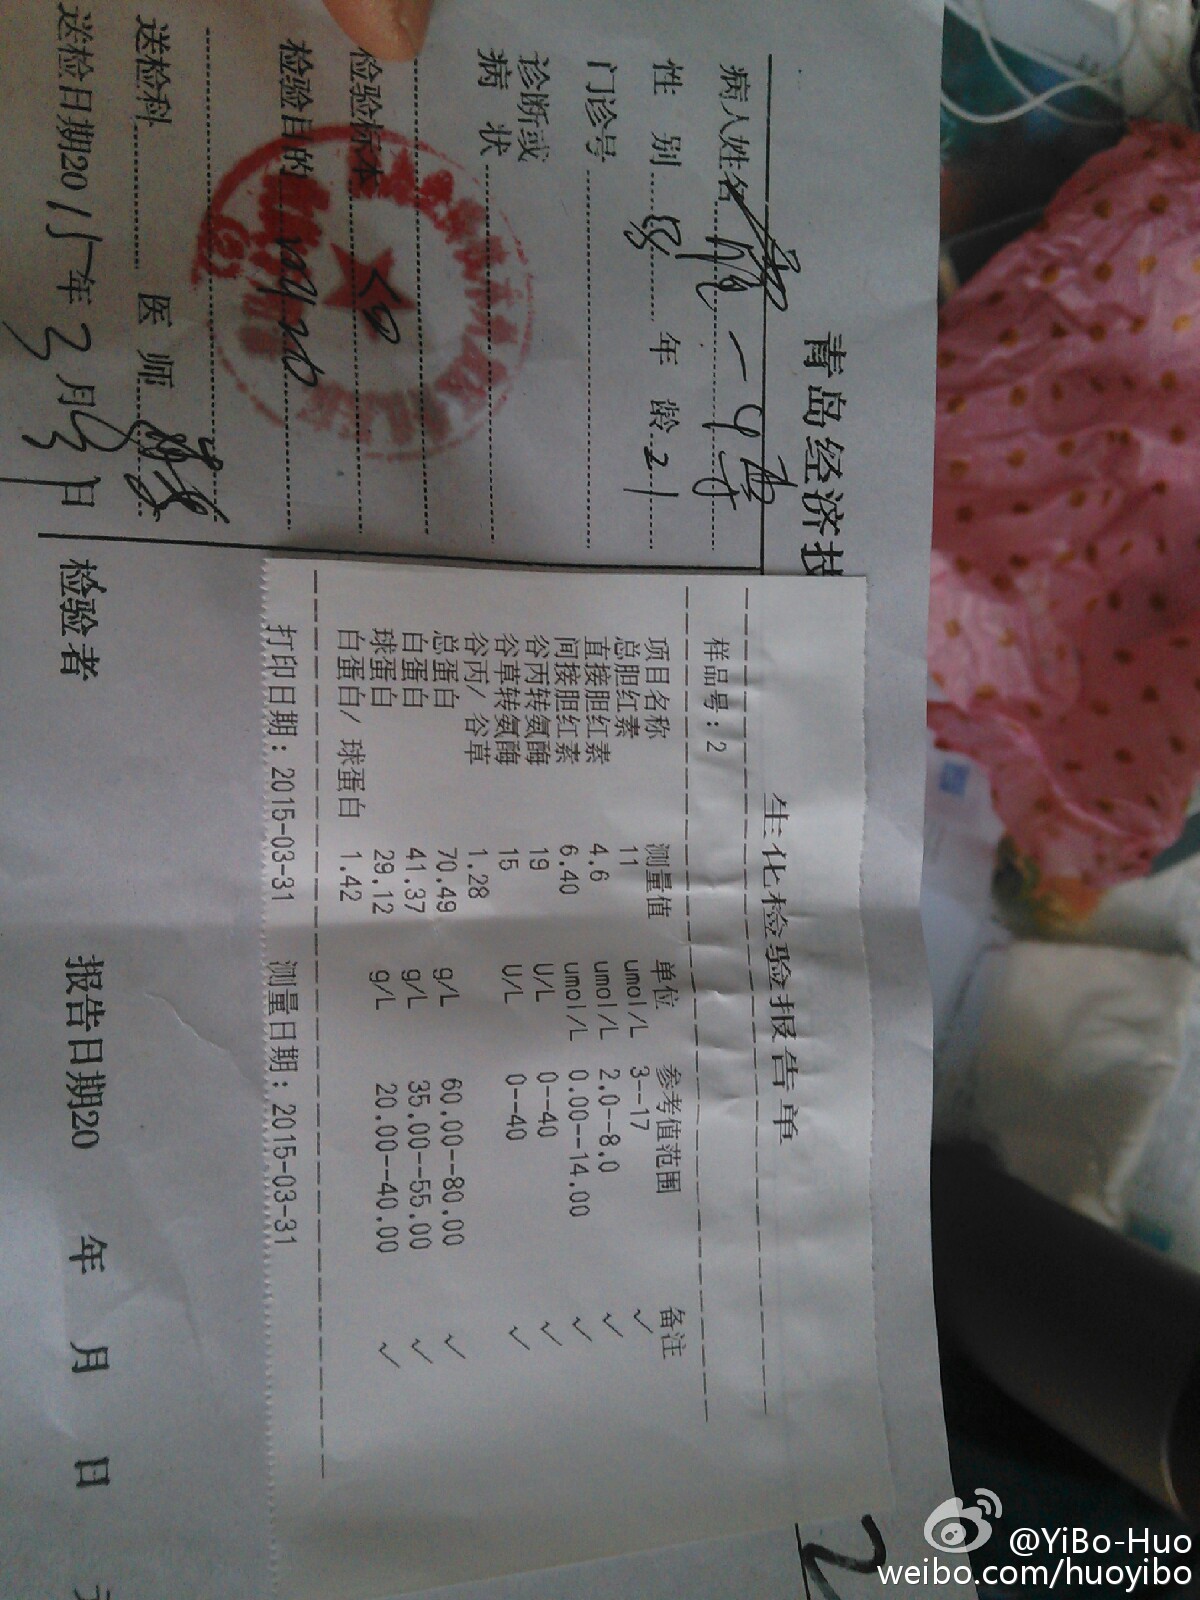 青岛经济技
病人姓名
性 别 男 年 龄 21
门诊号
诊断或
病 状
检验标本
检验目的
送检科 医 师
送检日期2015年3月31日
生化检验报告单
样品号：2
项目名称 测量值 单位 参考值范围 备注
总胆红素 11 umol/L 3--17 √
直接胆红素 4.6 umol/L 2.0--8.0 √
间接胆红素 6.40 umol/L 0.00--14.00 √
谷丙转氨酶 19 U/L 0--40 √
谷草转氨酶 15 U/L 0--40 √
谷丙/ 谷草 1.28
总蛋白 70.49 g/L 60.00--80.00 √
白蛋白 41.37 g/L 35.00--55.00 √
球蛋白 29.12 g/L 20.00--40.00 √
白蛋白/ 球蛋白 1.42
打印日期：2015-03-31 测量日期：2015-03-31
检验者 报告日期20 年 月 日
2
@YiBo-Huo
weibo.com/huoyibo